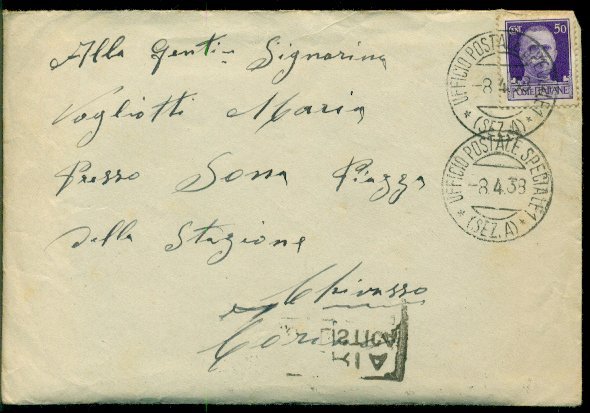 Alla Gentil Signorina
Vogliotti Maria
Presso Sona Piazza
della Stazione
Chivasso
Torino
CENT. 50
POSTE ITALIANE
UFFICIO POSTALE SPECIALE 1
-8.4.38
(SEZ.A)
UFFICIO POSTALE SPECIALE 1
-8.4.38
(SEZ.A)